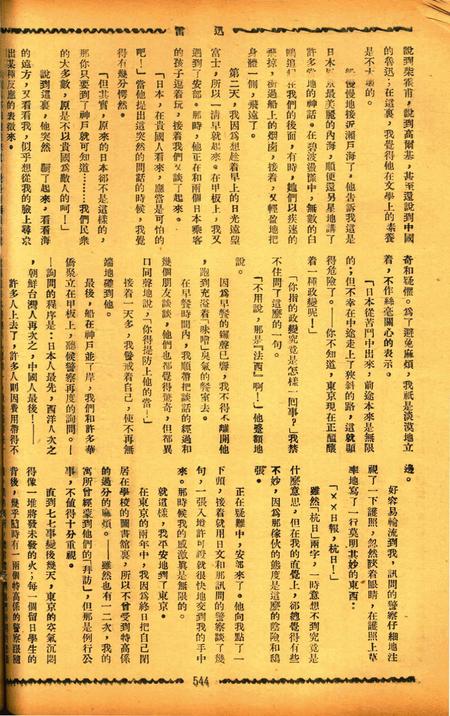 迅雷
說到柴霍甫，說到高爾基，甚至還說到中國
的魯迅；在這裏，我覺得他在文學上的素養
是不太壞的。
慢慢地接近瀨戶海了。他告訴我這是
日本最美麗的內海，順便還另星地講了
許多當地的神話。在碧波蕩漾中，無數的白
鷗追隨在我們的後面，有時，她們以疾速的
飛掠，衝過船上的烟囱，接着，又輕盈地把
身體一側，飛遠了。
第二天，我因爲想趁着早上的日光遠望
富士，所以一清早就起來。在甲板上，我又
遇到了安都。那時，他正在和兩個日本乘客
的孩子逗着玩，接着我們又談了起來。
「日本，在貴國人看來，應當是可怕的
吧！」當他提出這突然的問話的時候，我覺
得有幾分愕然。
「但其實，原來的日本卻不是這樣的，
那你只要到了神戶就可知道……我們民衆
的大多數，原是不以貴國爲敵人的呵！」
說到這裏，他突然嚴肅了起來，看看海
的遠方，又看看我，似乎想從我的臉上尋求
出某種反應的表徵來。
奇和疑懼。爲了避免麻煩，我祇是淡漠地立
着，不作絲毫關心的表示。
「日本從苦鬥中出來，前途本來是無限
的；但不幸在中途走上了狹斜的路，這就顯
得危險了。——你不知道，東京現在正醞釀
着一種政變呢！」
「你指的政變究竟是怎樣一回事？」我禁
不住問了這麼的一句。
「不用說，那是『法西』啊！」他蹙額地
說。
因爲早餐的鑼聲已響，我不得不離開他
，跑到充溢着「味噌」臭氣的餐室去。
在早餐時間內，我順帶把談話的經過和
幾個朋友談談，他們也都覺得驚奇，但都異
口同聲地說，「你得提防上他的當！」
接着一天多，我警戒着自己，使不再無
端地碰到他。
最後，船在神戶並了岸，我們和許多華
僑聚立在甲板上，聽候警察再度的詢問。—
—詢問的程序是：日本人最先，西洋人次之
，朝鮮台灣人再次之，中國人最後！——
許多人上去了，許多人則因費用帶得不
邊。
好容易輪流到我，訊問的警察仔細地注
視了一下護照，忽然映着眼睛，在護照上草
率地寫了一行莫明其妙的東西：
「××日報，杭日！」
雖然「杭日」兩字，一時意想不到究竟是
什麼意思，但在我的直覺上，卻總覺得有些
不妙，因爲那傢伙的態度是這麼的陰險和鴟
張。
正在疑難中，安都來了。他向我點了一
下頭，接着就用日文和那訊問的警察談了幾
句，一張入境許可證就很快地交到我的手中
來。那時候我的感激眞是無限的。
就這樣，我平安地到了東京。
在東京的兩年中，我因爲終日把自己閉
居在學校的圖書館裏，所以不曾受到特高係
的過分的麻煩。——雖然也有一二次，我的
寓所曾經蒙到他們的「拜訪」，但那是例行公
事，不值得十分重視。
直到七七事變後幾天，東京的空氣沉悶
得像一堆將發未發的火；每一個留日學生的
背後，幾乎隨時有一兩個特高係的警察跟隨
544